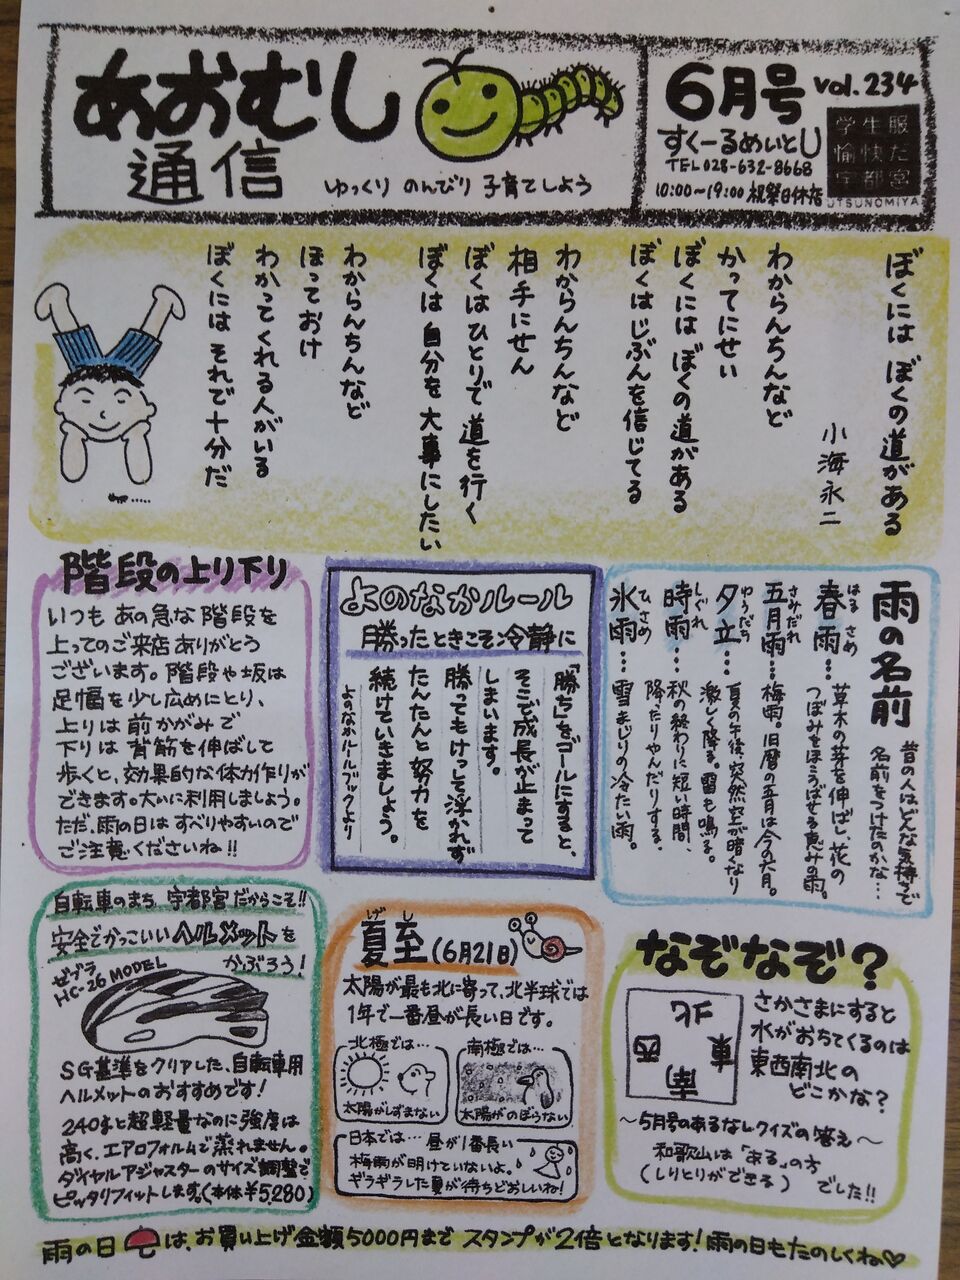 あおむし
通信
ゆっくり のんびり 子育てしよう
6月号 vol.234
すくーるめいとU
TEL 028-632-8668
10:00〜19:00 祝祭日休店
学生服
愉快だ
宇都宮
UTSUNOMIYA
ぼくには ぼくの道がある
小海永二
わからんちんなど
かってにせい
ぼくには ぼくの道がある
ぼくはじぶんを信じてる
わからんちんなど
相手にせん
ぼくはひとりで 道を行く
ぼくは 自分を 大事にしたい
わからんちんなど
ほっておけ
わかってくれる人がいる
ぼくには それで十分だ
階段の上り下り
いつも あの急な階段を
上ってのご来店ありがとう
ございます。階段や坂は
足幅を少し広めにとり、
上りは前かがみで
下りは 背筋を伸ばして
歩くと、効果的な体力作りが
できます。大いに利用しましょう。
ただ、雨の日は すべりやすいので
ご注意くださいね!!
よのなかルール
勝ったときこそ冷静に
「勝ち」をゴールにすると、
そこで成長が止まって
しまいます。
勝ってもけっして浮かれず
たんたんと努力を
続けていきましょう。
よのなかルールブックより
雨の名前
昔の人はどんな気持ちで
名前をつけたのかな…
春雨…
はる さめ
草木の芽を伸ばし、花の
つぼみをほころばせる恵みの雨。
五月雨…
さみだれ
梅雨。旧暦の五月は今の六月。
夕立…
ゆうだち
夏の午後突然空が暗くなり
激しく降る。雷も鳴る。
時雨…
しぐれ
秋の終わりに短い時間、
降ったりやんだりする。
氷雨…
ひさめ
雪まじりの冷たい雨。
自転車のまち 宇都宮だからこそ!!
安全でかっこいいヘルメットを
かぶろう!
ゼブラ
HC-26 MODEL
SG基準をクリアした、自転車用
ヘルメットのおすすめです!
240gと超軽量なのに強度は
高く、エアロフォルムで蒸れません。
ダイヤルアジャスターのサイズ調整で
ピッタリフィットします。(本体¥5280)
げ し
夏至(6月21日)
太陽が最も北に寄って、北半球では
1年で一番昼が長い日です。
北極では…
太陽がしずまない
南極では…
太陽がのぼらない
日本では… 昼が1番長い
梅雨が明けていないよ。
ギラギラした夏が待ちどおしいね!
なぞなぞ?
北
西
東
南
さかさまにすると
水がおちてくるのは
東西南北の
どこかな?
〜5月号のあるなしクイズの答え〜
和歌山は「ある」の方
(しりとりができる) でした!!
雨の日は、お買い上げ金額5000円まで スタンプが2倍となります! 雨の日もたのしくね♡